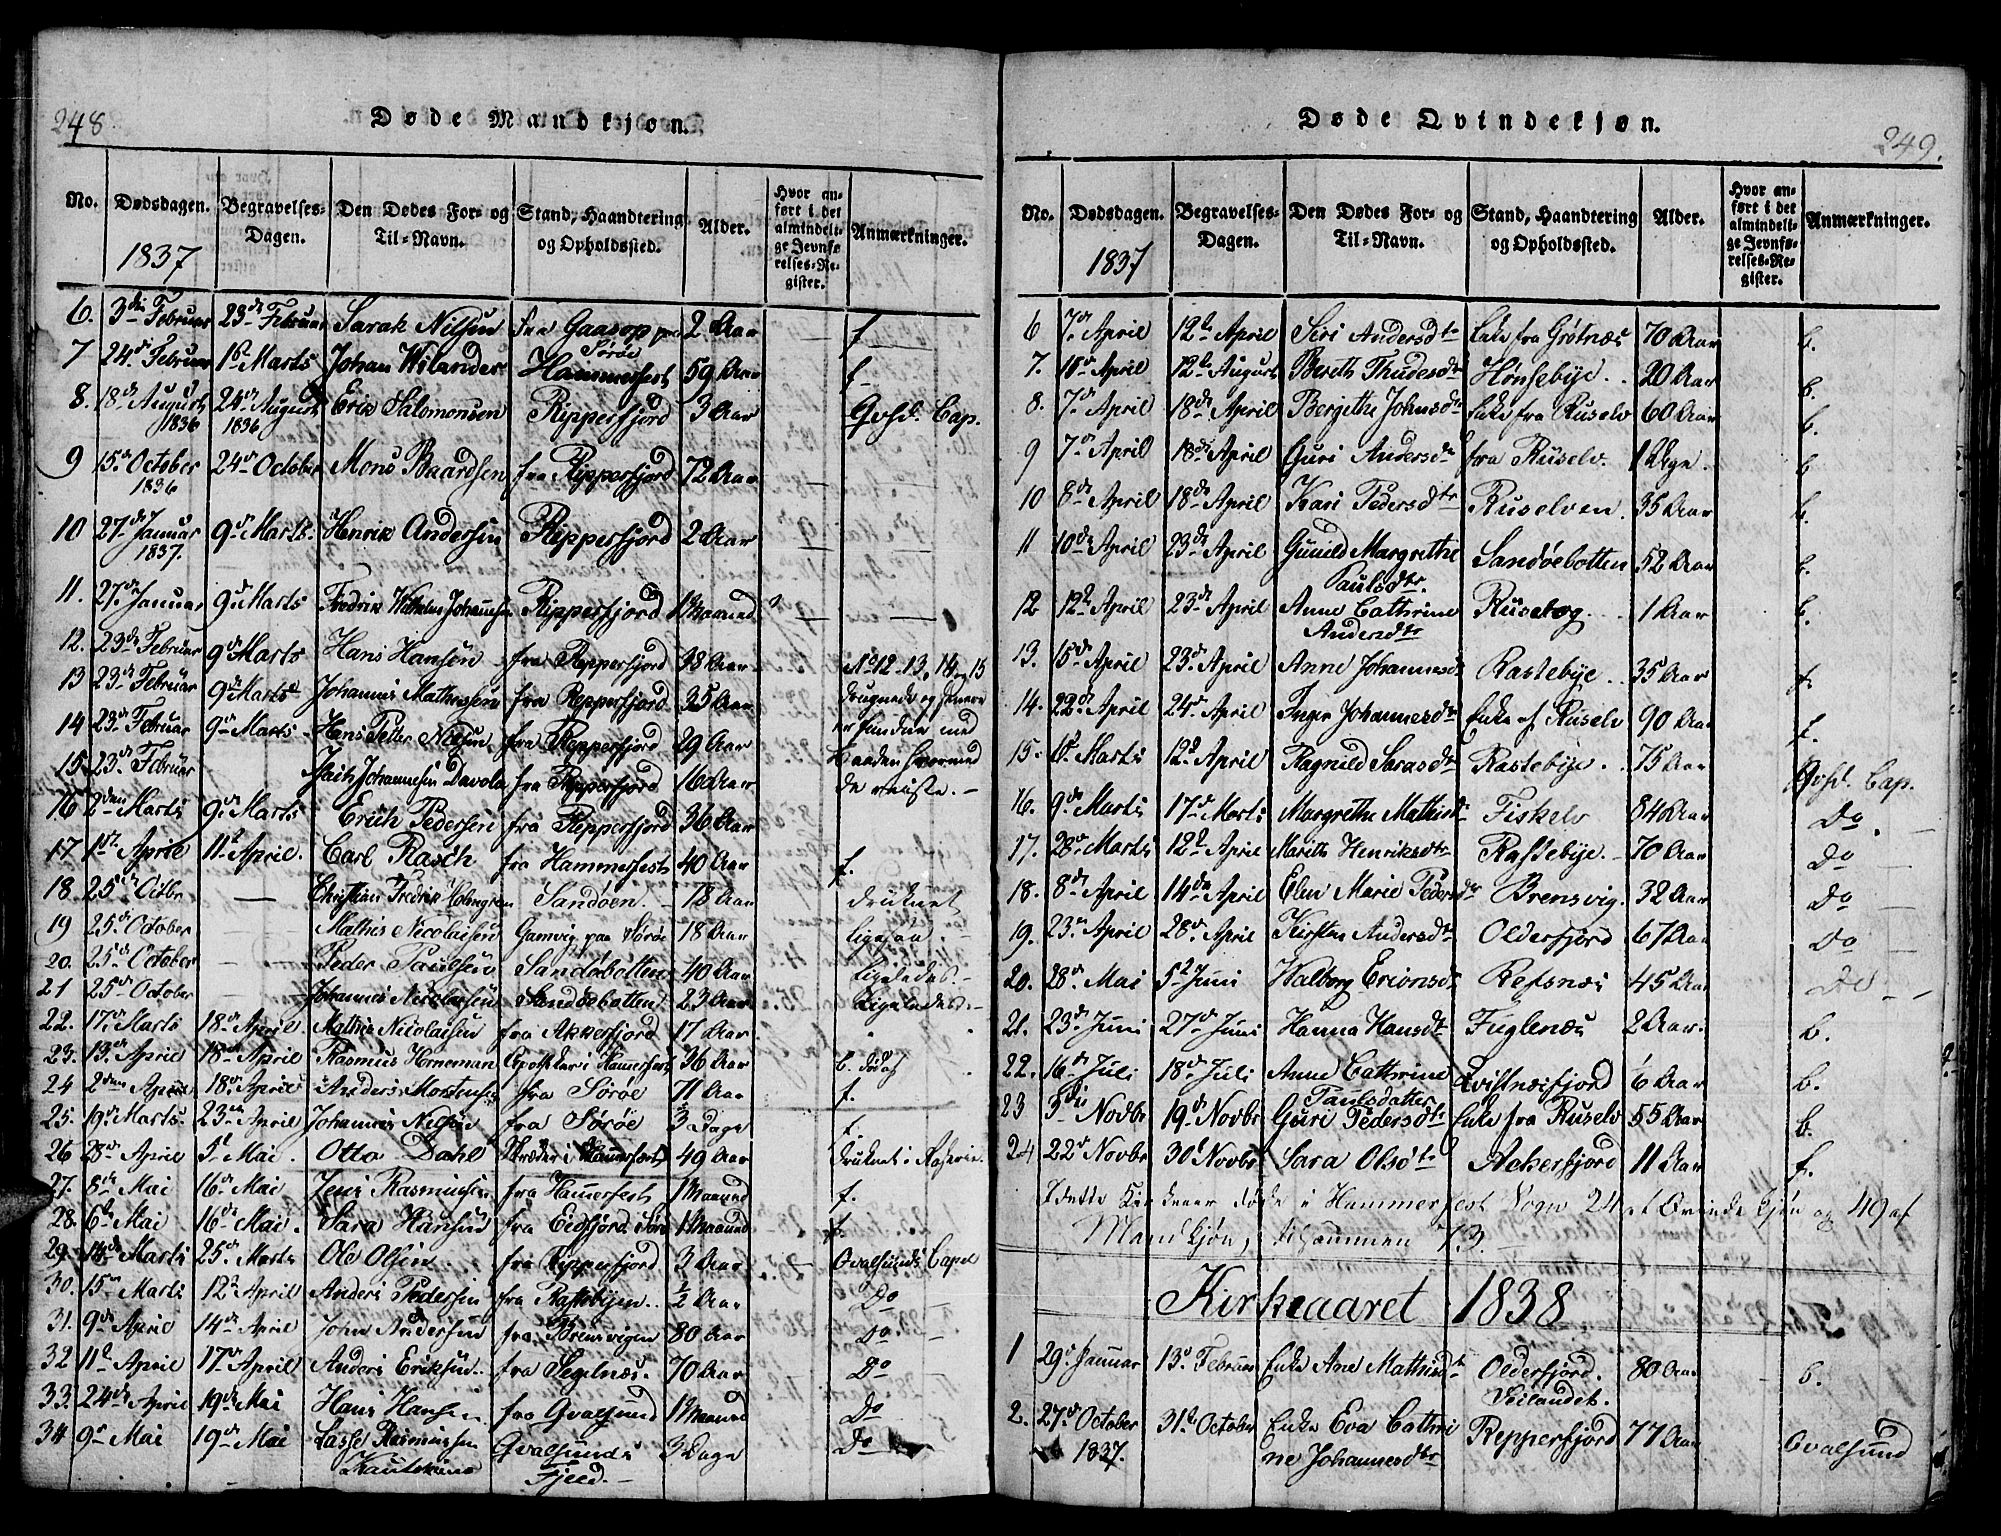 248.
Døde Mandkjøn.
No. Dødsdagen. 1837 Begravelses-Dagen. Den Dødes For- og Til-Navn. Stand, Haandtering og Opholdssted. Alder. Hvor anført i det almindelige Jevnførelses-Register. Anmærkninger.
6. 3die Februar 23de Februar Sarak Nilsen fra Gaasop paa Sørøe 2 Aar f
7 24de Februar 1ste Marts Johan Wilander Hammerfest 59 Aar f.
8. 18de August 1836 24de August 1836 Erik Salomonsen Ripperfjord 3 Aar Qvsd. Cap.
9 15de October 1836 24de October Mons Baardsen fra Ripperfjord 72 Aar —
10 27de Januar 1837. 9de Marts. Henrik Andersen Ripperfjord 2 Aar —
11. 27de Januar 9de Marts Fredrik Wilhelm Johannesen Ripperfjord 1 Maaned —
12. 23de Februar 9de Marts Hans Hansen fra Repperfjord 38 Aar No 12. 13, 14 og 15
13 23de Februar 9de Marts Johannis Mathissen fra Repperfjord 35 Aar druknede og senere
14 23de Februar 9de Marts Hans Petter Nilsen fra Repperfjord 29 Aar er funden med
15 23de Februar Johannesen Davola fra Repperfjord 16 Aar Baaden hvormed
de reiste. —
16 2den Marts 9de Marts Erich Pedersen fra Repperfjord 36 Aar
17 1ste April 11te April. Carl Rasch fra Hammerfest 40 Aar f.
18. 25de Octbr — Christian Fredrik Holmgren Sandøen. — 18 Aar druknet
19 25de October — Mathis Nicolaisen Gamvig paa Sørøe 18 Aar ligesaa. —
20. 25de October — Peder Paulsen Sandøbotten 40 Aar ligeledes. —
21 25de October — Johannes Nicolaisen Sandøebotten 23 Aar Ligeledes. —
22. 17de Marts 18de April Mathis Nicolaisen fra Akkerfjord 17 Aar
23. 13de April 18de April Rasmus Horneman Apotheker i Hammerfest 36 Aar b.
24 2den April 18de April Anders Mortensen fra Sørøe 71 Aar f.
25. 19de Marts 23de April Johannes Nilsen fra Sørøe 3 Dage f.
26 28de April 5te Mai. Otto Dahl Skræder i Hammerfest 49 Aar Druknet i
27. 8de Mai 16de Mai Jens Rasmussen fra Hammerfest 1 Maaned f.
28. 6te Mai 16de Mai. Sara Hansen fra Eidfjord Sørøe 1 Maaned f.
29 14de Marts 25de Marts Ole Olsen. fra Ripperfjord 3 Aar Qvalsunds Capel
30. 15de Marts 12te April Anders Pedersen fra Rastebyen. ½ Aar Do —
31. 9de April 14de April John Andersen fra Brensvigen 80 Aar Do. —
32 11te April 17de April Anders Eriksen. fra Segelnæs. 70 Aar Do
33. 24de April 19de Mai Hans Hansen fra Qvalsund 1 Maaned Do
34 9de Mai 19de Mai Lasse Rasmussen Kautokeino Qvalsunds Fjeld. — 3 Dage Do
249.
Døde Qvindekjøn.
No. Dødsdagen. 1837 Begravelses-Dagen. Den Dødes For- og Til-Navn. Stand, Haandtering og Opholdssted. Alder. Hvor anført i det almindelige Jevnførelses-Register. Anmærkninger.
6 7de April 12te April Siri Andersdtr Enke fra Grøtnæs 70 Aar b.
7. 11te April 12te August Bereth Thudesdtr Hønsebye. . 20 Aar b.
8. 7de April 18de April Bergethe Johnsdtr Enke fra Ruselv 60 Aar b.
9 7de April 18de April Guri Andersdtr fra Ruselv. 1 Uge. b
10 8de April 18de April Kari Pedersdtr Ruselven. 35 Aar b.
11 10de April 23de April Gunild Margrethe Paulsdtr. Sandøebotten 52 Aar b.
12 12te April 23de April Anne Cathrine Andersdtr 1 Aar b.
13. 15de April 23de April Anne Johannesdtr Rastebye. 35 Aar f.
14. 22de April 24de April Inger Johannesdtr Enke af Ruselv 90 Aar f.
15. 1ste Marts 12te April Ragnild Sarasdtr Rastebye. . 75 Aar Qvsd. Cap.
16. 9de Marts 17de Marts Margrethe Mathisdtr Fiskelv 84 Aar Do. —
17. 28de Marts 12te April Marith Henriksdtr Rastebye. — 70 Aar Do —
18. 8de April 14de April Elen Marie Pedersdtr Brensvig. 32 Aar Do —
19. 23de April 28de April Kirsten Andersdtr Olderfjord 67 Aar Do —
20. 28de Mai 5te Juni Walborg Ericnsdtr Refsnæs 45 Aar Do — —
21. 23de Juni 27de Juni Hanna Hansdtr Fuglenæs 2 Aar. b.
22. 16de Juli 18de Juli Anne Cathrine Paulsdatter Qvistnæsfjord 6 Aar b.
23 5te Novbr 19de Novbr Guri Pedersdtr Enke fra Ruselv 55 Aar b.
24 22de Novbr 30te Novbr Sara Olsdtr Ackerfjord 11 Aar f.
I dette Kirkeaar døde i Hammerfest Sogn 24 af Qvindekjøn og 49 af
Mandkjøn, tilsammen 73. —
Kirkeaaret 1838
1 29de Januar 13de Februar Enke Ane Mathisdtr Olderfjord. Seilandet. 80 Aar b.
2. 27de October 1837. 31te October Enke Eva Cathrine Johannesdtr Repperfjord 77 Aar Qvalsund